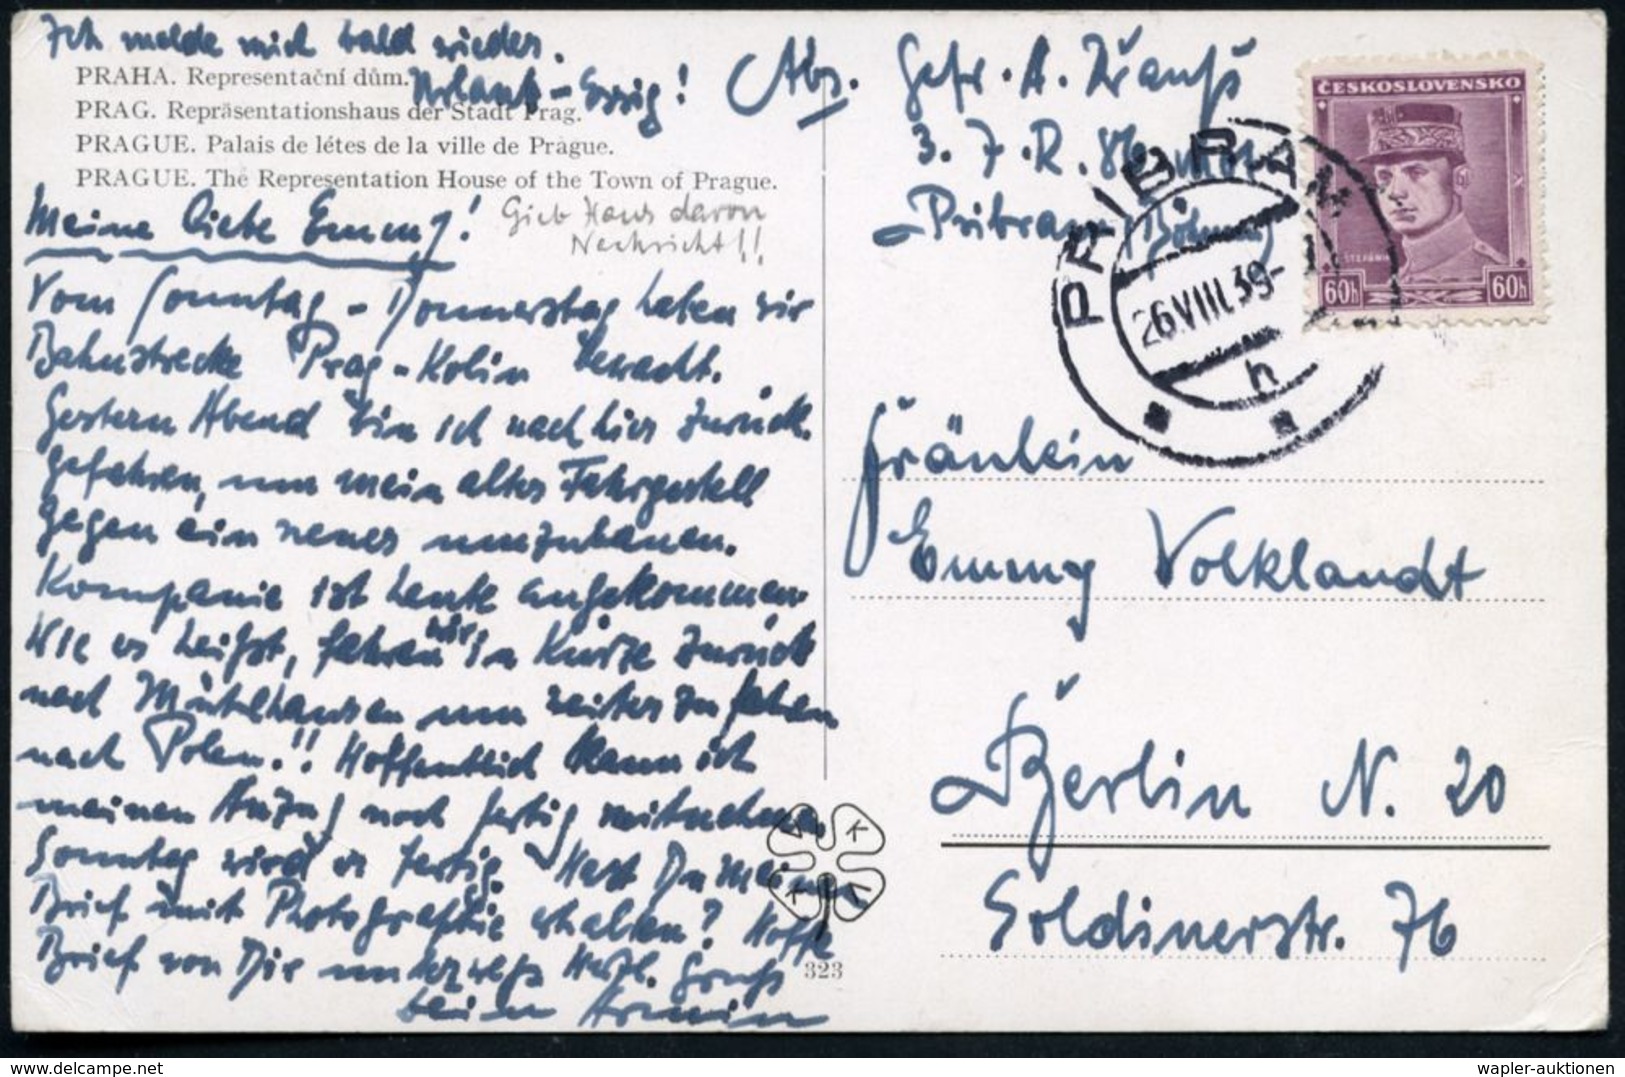 Ich melde mich bald wieder.
PRAHA. Representační dům.
Urlaub - Essig!
PRAG. Repräsentationshaus der Stadt Prag.
PRAGUE. Palais de létes de la ville de Prague.
PRAGUE. The Representation House of the Town of Prague.
Gieb Hans davon
Nachricht!!
Meine liebe Emmy!
Vom Sonntag - Donnerstag haben wir
Bahnstrecke Prag - Kolin bewacht.
Gestern Abend bin ich nach hier zurück
gefahren, um mein altes Fahrgestell
gegen ein neues umzubauen.
Kompanie ist heute angekommen.
Wie es heißt, fahren wir in Kürze zurück
nach Mühlhausen um weiter zu fahren
nach Polen!! Hoffentlich kann ich
meinen Anzug noch fertig mitnehmen
Sonntag wird er fertig. Hast Du meinen
Brief mit Photographie erhalten? Hoffe
Brief von Dir unterwegs Herzl. Gruß
Armin
323
Abs. Gefr. A. Krauß
3. J.R. 86
Pribram, Böhmen
ČESKOSLOVENSKO
ŠTEFÁNIK
60h 60h
PŘIBRAM
26.VIII.39-
h
Fräulein
Emmy Volklandt
Berlin N. 20
Soldinerstr. 76
wapler-auktionen
www.delcampe.net